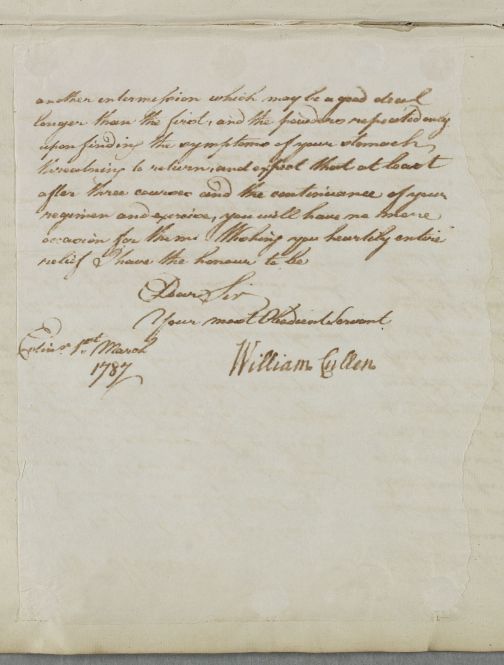 another intermission which may be a good deal
longer than the first, and the powders repeated only
upon finding the symptoms of your stomach
threatning to return, and expect that at least
after three courses and the continuance of your
regimen and exercise, you will have no more
occasion for them. Wishing you heartily entire
relief I have the honour to be
Dear Sir
Your most Obedient Servant
Edinr. 1st. March
1787
William Cullen